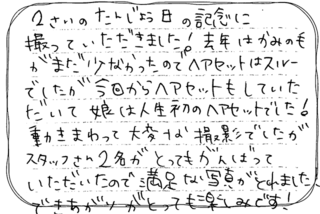 2さいのたんじょう日の記念に
撮っていただきました!去年はかみのも
がまだ少なかったのでヘアセットはスルー
でしたが今回からヘアセットもしていた
だいて娘は人生初のヘアセットでした!
動きまわって大変な撮影でしたが
スタッフさん2名がとってもがんばって
いただいたので満足な写真がとれました、
できあがりがとっても楽しみです!